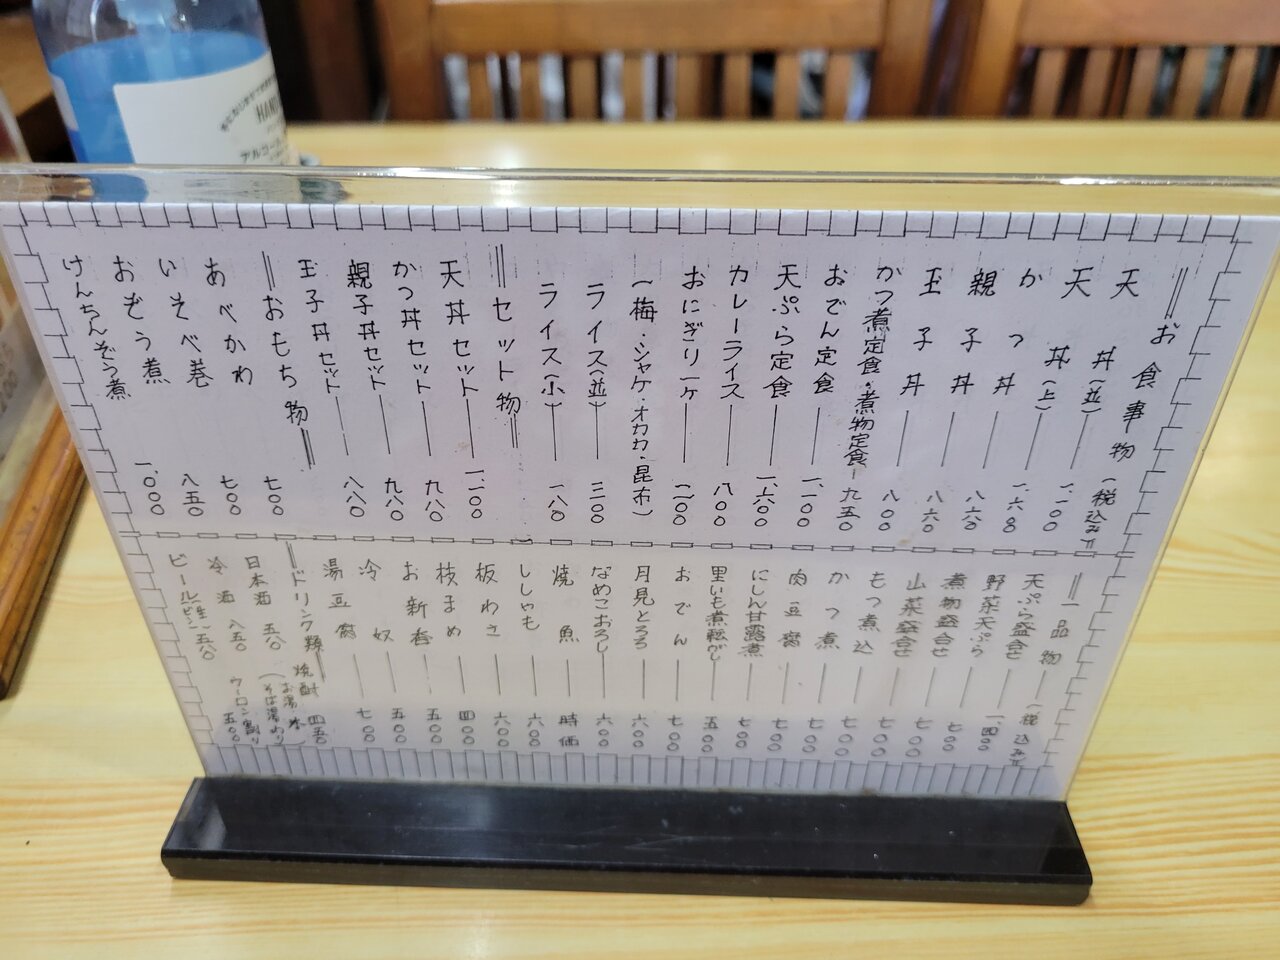 お食事物(税込み)
天丼(並) 一、一〇〇
天丼(上) 一、六〇〇
かつ丼 八六〇
親子丼 八六〇
玉子丼 八〇〇
かつ煮定食・煮物定食 九五〇
おでん定食 一、一〇〇
天ぷら定食 一、六〇〇
カレーライス 八〇〇
おにぎり一ケ 二〇〇
(梅・シャケ・オカカ・昆布)
ライス(並) 二〇〇
ライス(小) 一八〇
セット物
天丼セット 一、一〇〇
かつ丼セット 九八〇
親子丼セット 九八〇
玉子丼セット 八八〇
おもち物
あべかわ 七〇〇
いそべ巻 七〇〇
おぞう煮 八五〇
けんちんぞう煮 一、〇〇〇
一品物(税込み)
天ぷら盛合せ 一、四〇〇
野菜天ぷら 七〇〇
煮物盛合せ 七〇〇
山菜盛合せ 七〇〇
もつ煮込 七〇〇
かつ煮 七〇〇
肉豆腐 七〇〇
にしん甘露煮 七〇〇
里いも煮転がし 五〇〇
おでん 七〇〇
月見とろろ 六〇〇
なめこおろし 六〇〇
焼魚 時価
ししゃも 六〇〇
板わさ 六〇〇
枝まめ 四〇〇
お新香 五〇〇
冷奴 五〇〇
湯豆腐 七〇〇
ドリンク類
焼酎 四五〇
(お湯・水)
(そば湯わり)
日本酒 五八〇
ウーロン割り 五〇〇
冷酒 八五〇
ビール(生)(ビン) 五八〇
アルコール